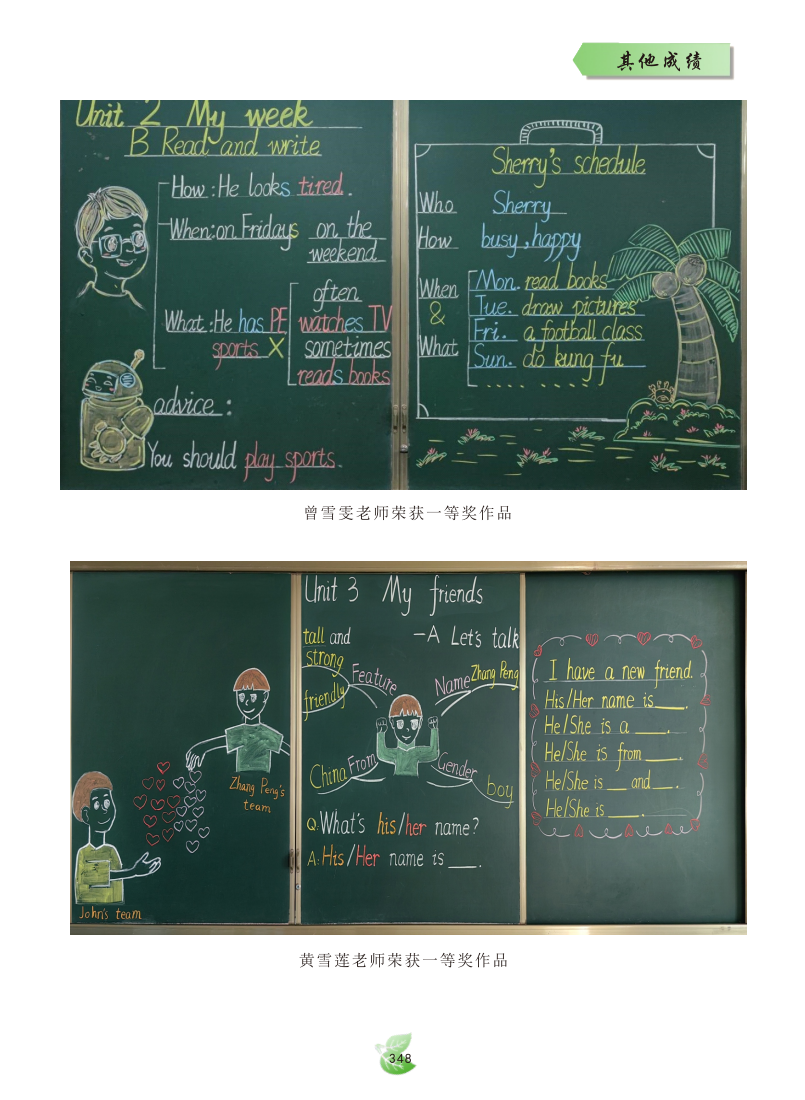 其他成绩
Unit 2 My week
B Read and write
How: He looks tired.
When: on Fridays on the
weekend
often
What: He has PE watches TV
sports X sometimes
reads books
advice:
You should play sports.
Sherry's schedule
Who Sherry
How busy, happy
When
&
What
Mon. read books
Tue. draw pictures
Fri. a football class
Sun. do kung fu
. . . . . .
曾雪雯老师荣获一等奖作品
Zhang Peng's
team
John's team
Unit 3 My friends
-A Let's talk
tall and
strong
friendly
Feature
Name
Zhang Peng
China
From
Gender
boy
Q: What's his/her name?
A: His/Her name is ___.
I have a new friend.
His/Her name is ___.
He/She is a ___.
He/She is from ___.
He/She is __ and __.
He/She is ___.
黄雪莲老师荣获一等奖作品
348